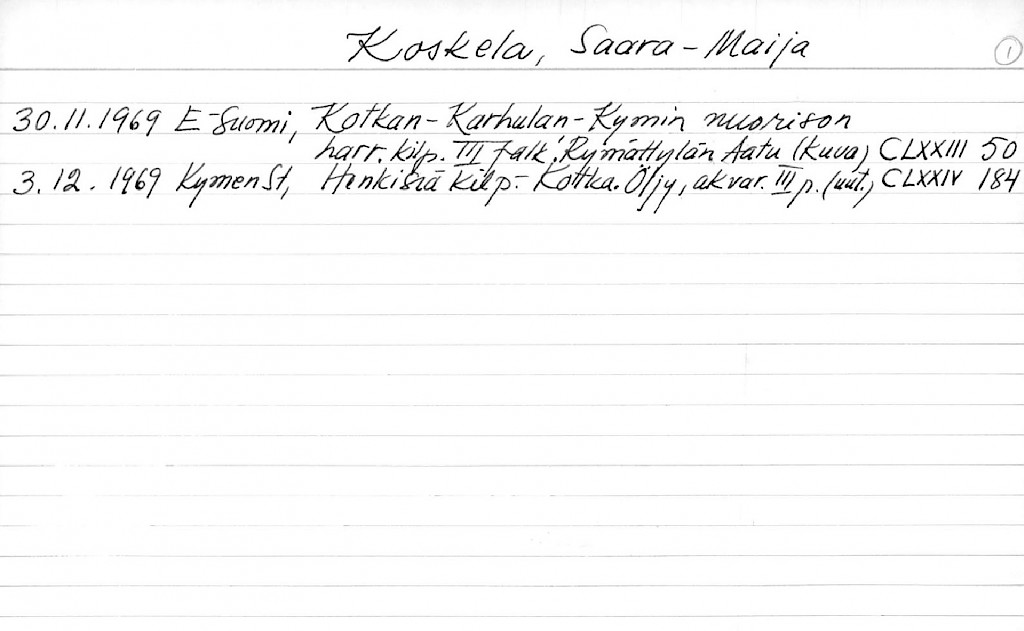 Koskela, Saara-Maija 1
30.11.1969 E-Suomi, Kotkan-Karhulan-Kymin nuorison
harr. kilp. III palk. Rymättylän Aatu (kuva) CLXXIII 50
3.12.1969 Kymen St, Henkistä kilp.- Kotka. Öljy, akvar. III p. (uut.) CLXXIV 184